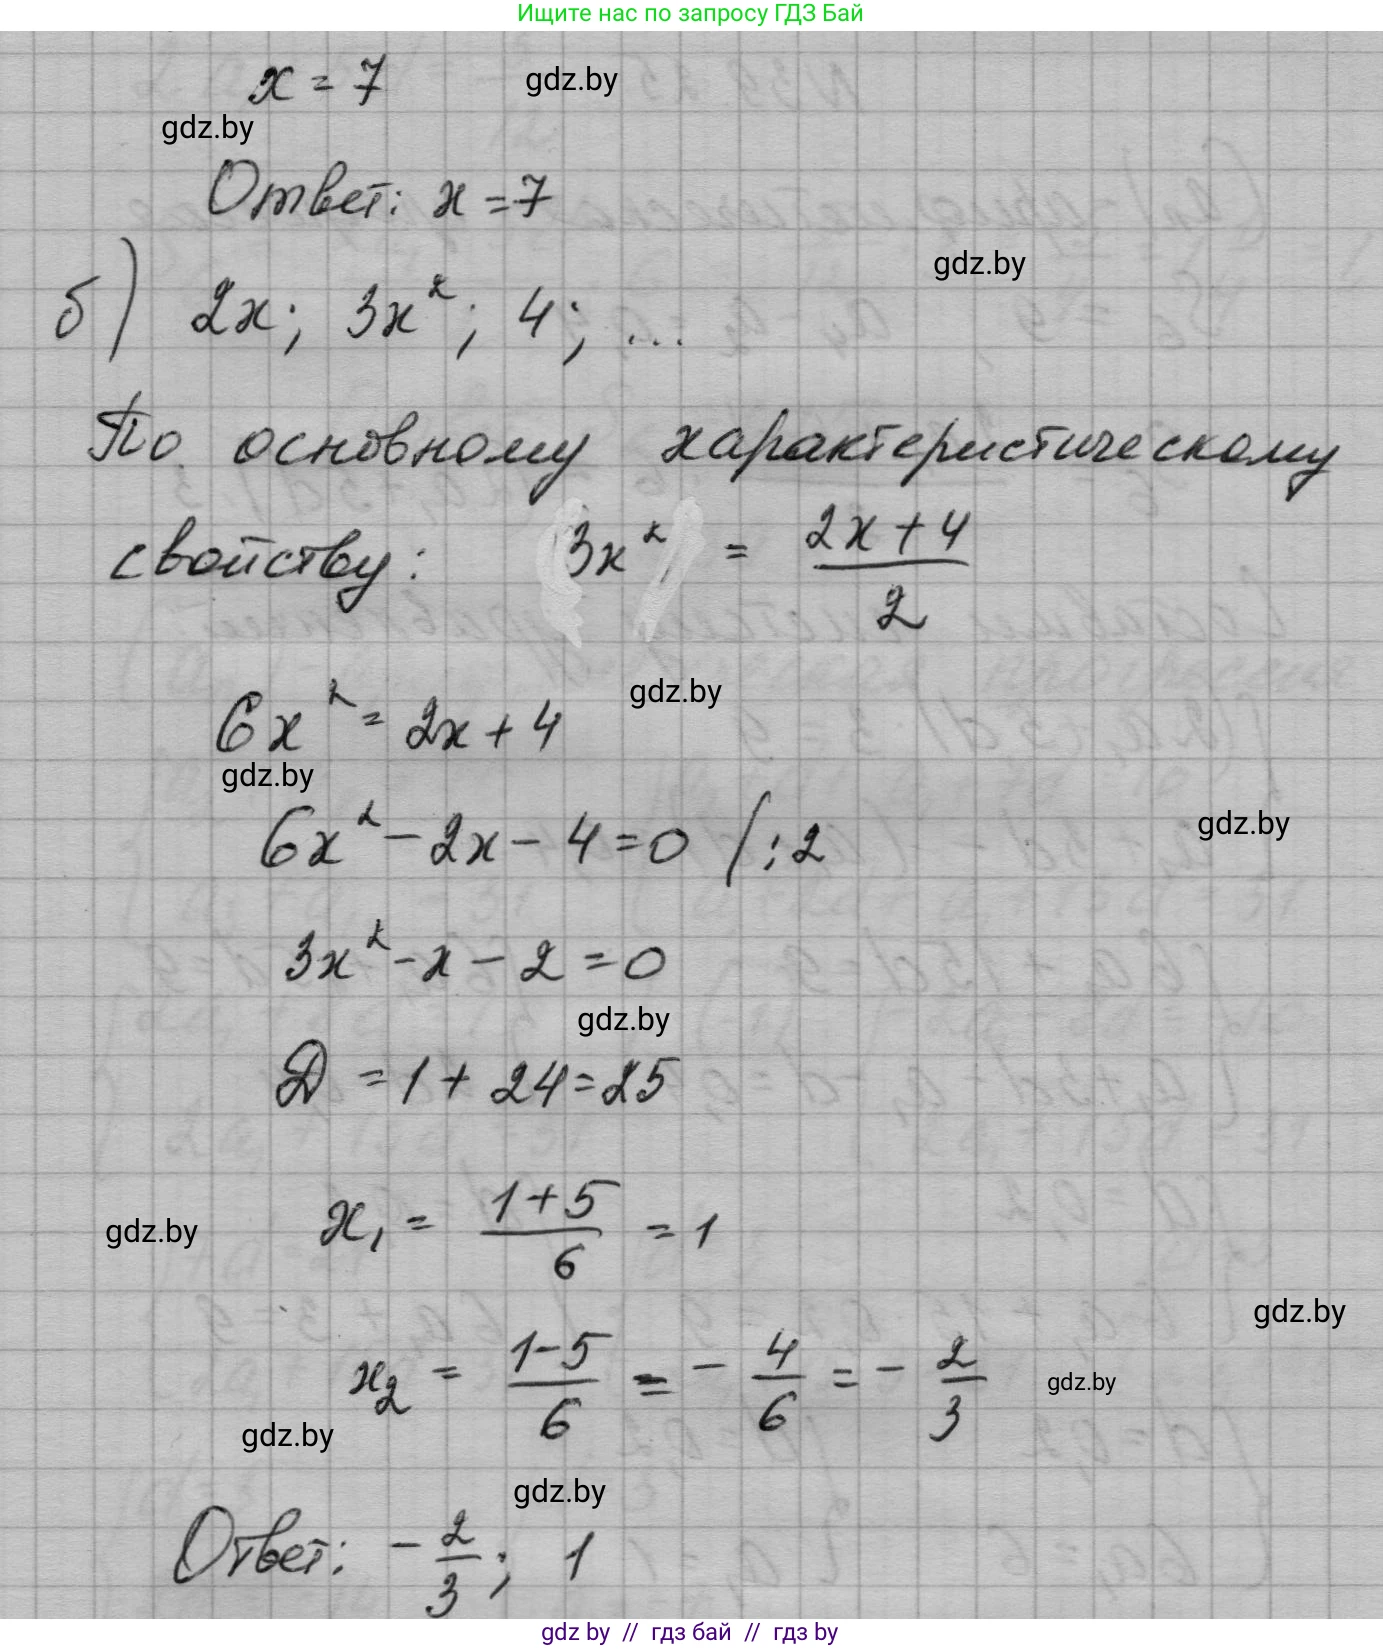 Ищите нас по запросу ГДЗ Бай
x = 7
gdz.by
gdz.by
Ответ: x = 7
gdz.by
б) 2x; 3x²; 4; ...
По основному характеристическому
свойству: 3x² = (2x + 4)/2
gdz.by
6x² = 2x + 4
gdz.by
6x² − 2x − 4 = 0 / :2
gdz.by
3x² − x − 2 = 0
gdz.by
D = 1 + 24 = 25
x₁ = (1 + 5)/6 = 1
gdz.by
gdz.by
x₂ = (1 − 5)/6 = − 4/6 = − 2/3
gdz.by
gdz.by
gdz.by
Ответ: − 2/3; 1
gdz by // гдз бай // гдз by